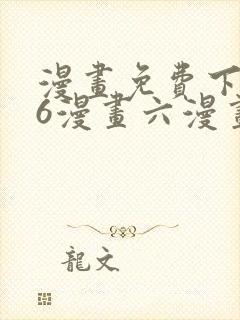 漫畫免費下
6漫畫六漫畫
龍文